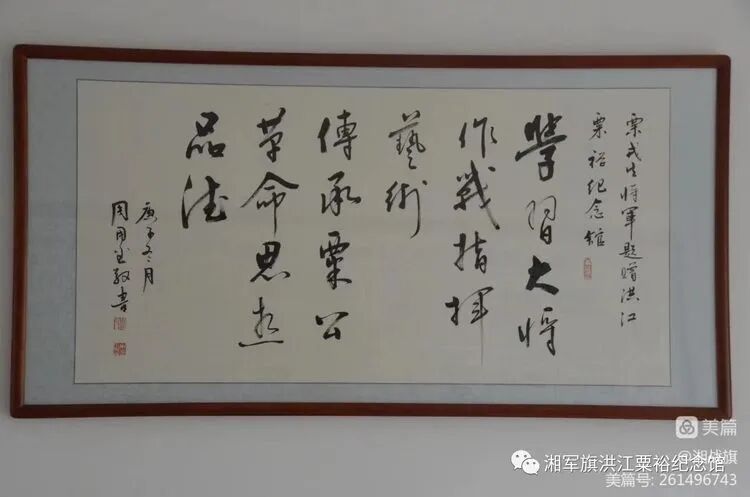 粟戎生将軍题赠洪江
粟裕纪念館
學習大将
作戰指揮
藝術
傳承粟公
革命思想
品德
庚子冬月
敬書
美篇
@湘战旗
湘军旗洪江粟裕纪念馆
美篇号: 261496743